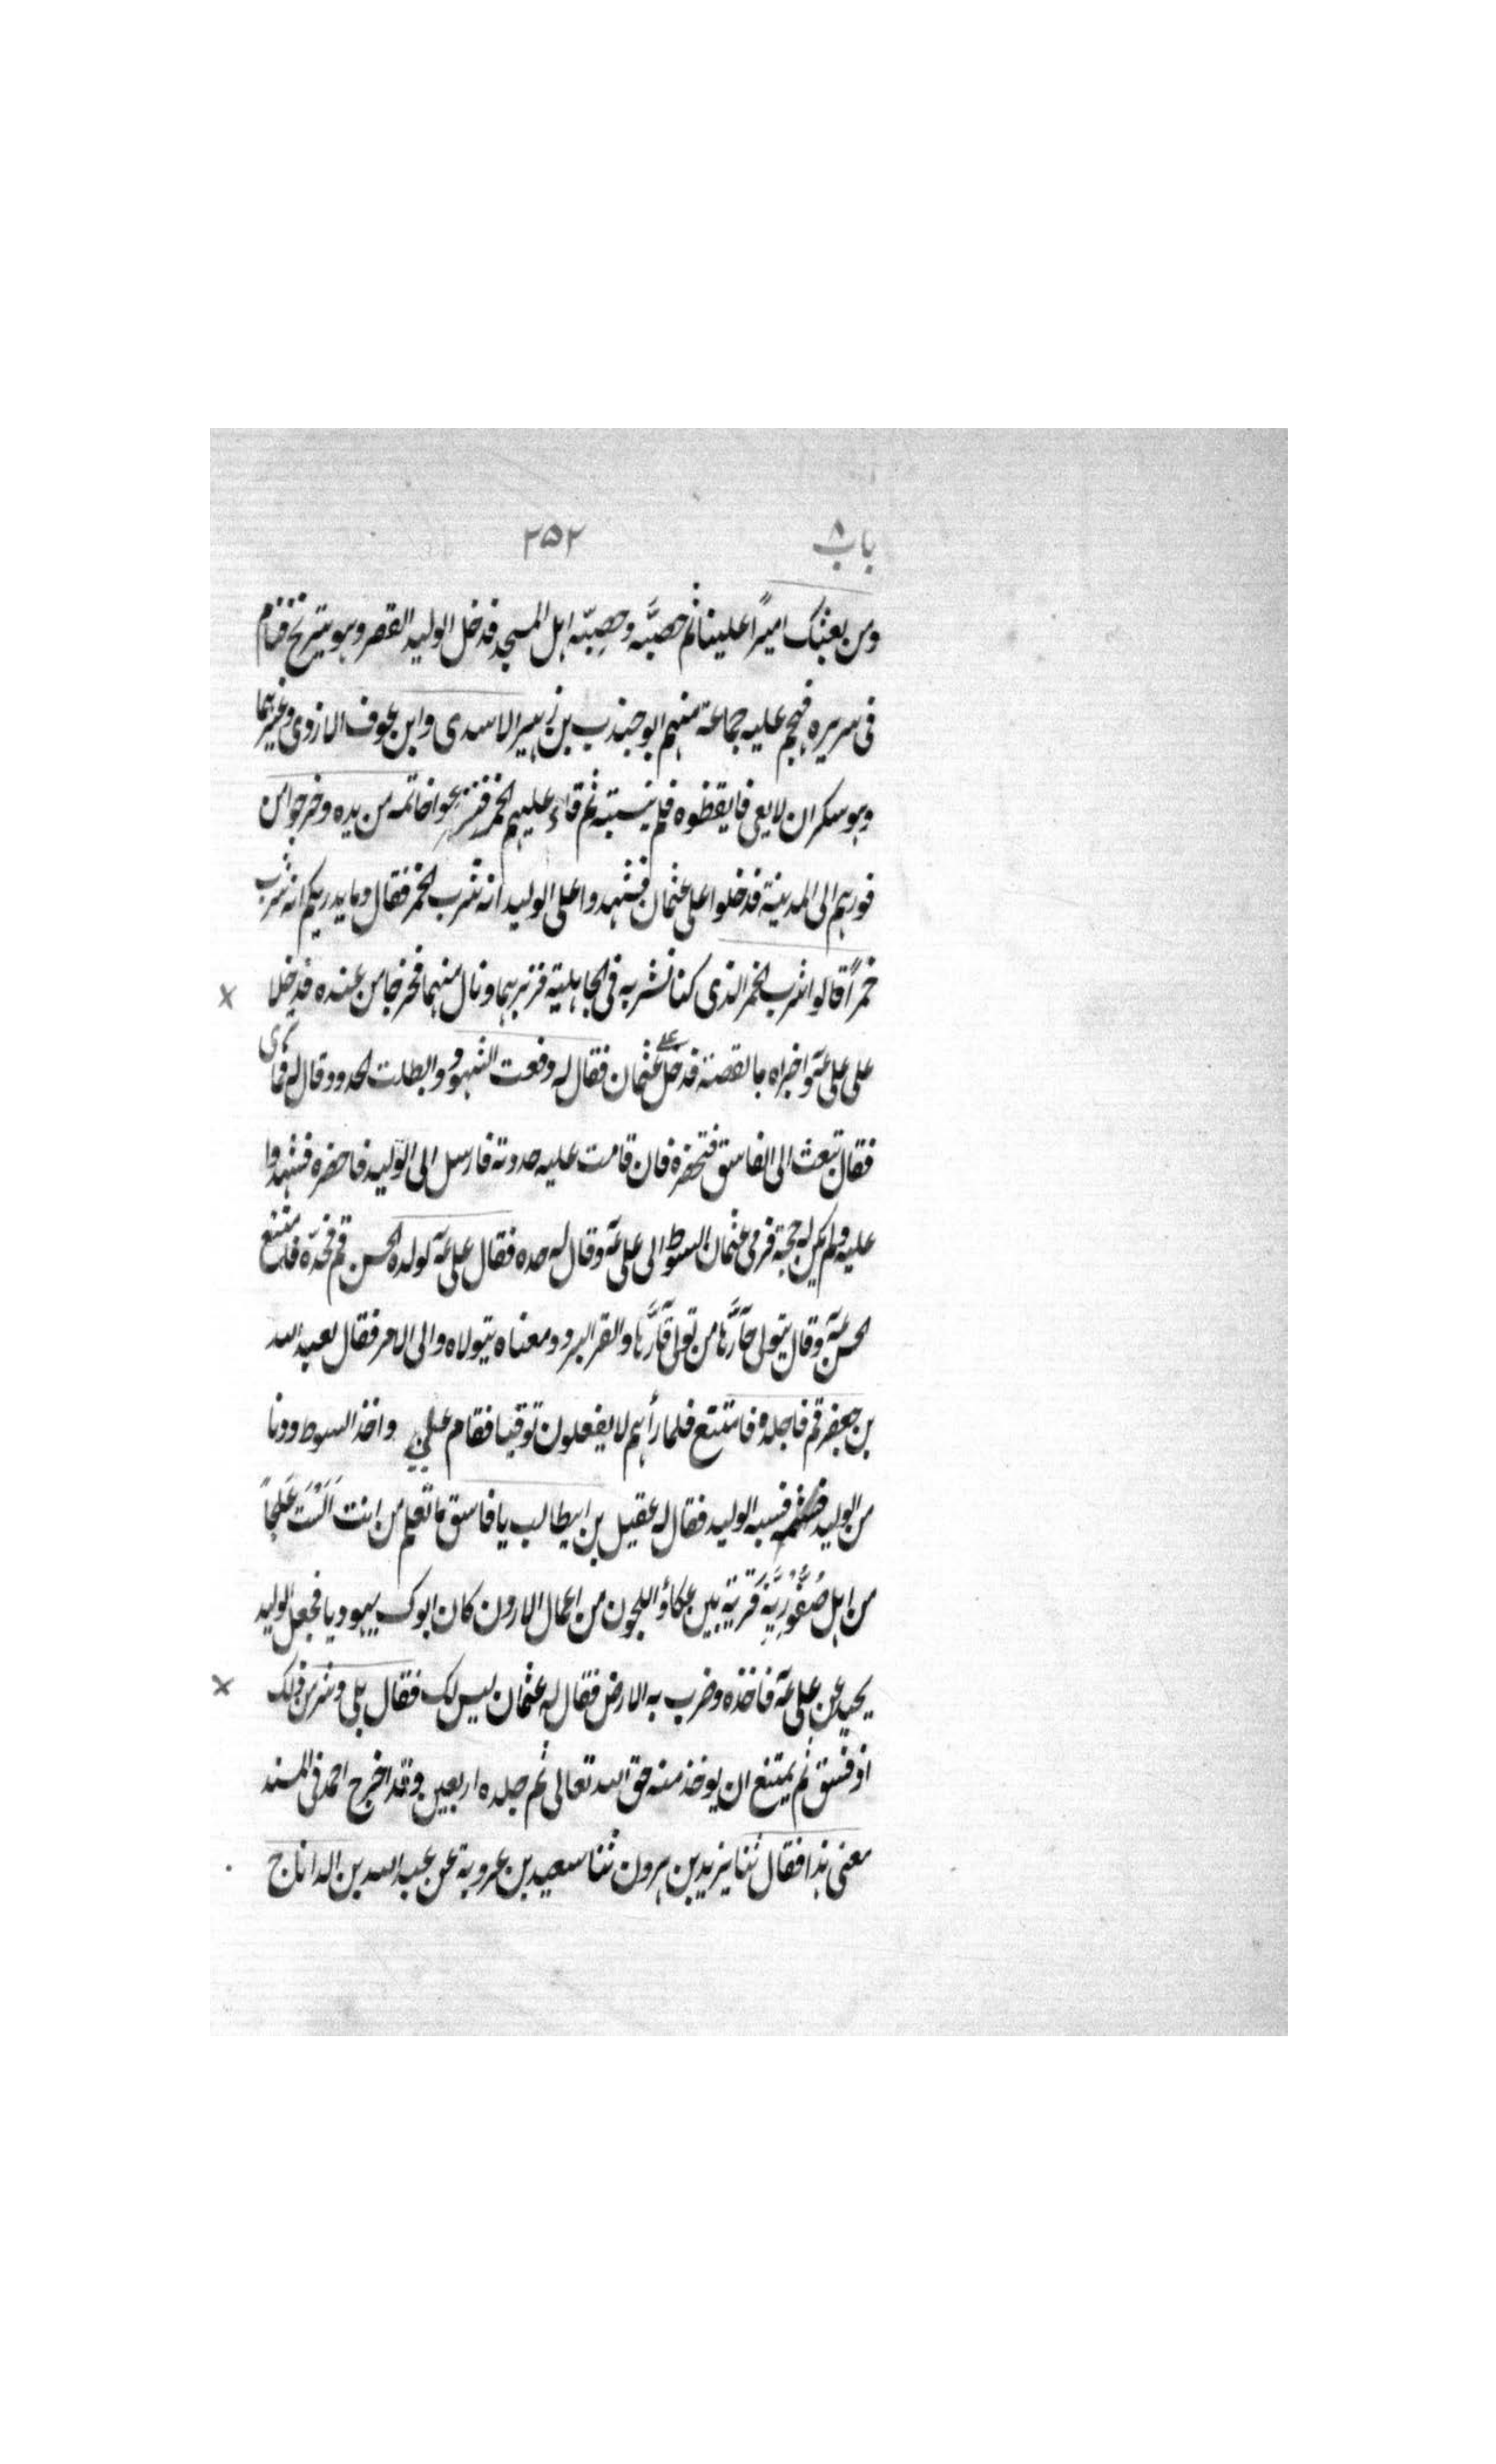 باب ٨ ٢٥٢
ومن بعثک امیرًا علینا ثم حصبَّه وحصِبّه اهل المسجد فدخل الولید القصر وهو یترنح فنام
فی سریره فهجم علیه جماعة منهم ابو جندب بن زهیر الاسدی وابن عوف الازدی وغیرهما
وهو سکران لا یعی فایقظوه فلم ینتبه ثم قاء علیهم الخمر فنزعوا خاتمه من یده وخرجوا من
فورهم الی المدینة فدخلوا علی عثمان فشهدوا علی الولید انه شرب الخمر فقال وما یدریکم انه شرب
خمراً قالوا شرب الخمر الذی کنا نشربه فی الجاهلیة فزبرهما ونال منهما فخرجا من عنده فدخلا
علی علی عؔ واخبراه بالقصة فدخل علی عثمان فقال له دفعت الشهود وابطلت الحدود وقال له فما تری
فقال تبعث الی الفاسق فتحضره فان قامت علیه حدوته فارسل الی الولید فاحضره فشهدوا
علیه ولم یکن له حجة فرمی عثمان السوط الی علی عؔ وقال له حده فقال علی عؔ لولده الحسن قم فحدّه فامتنع
الحسن عؔ وقال یتولی حآرَّها من تولی قآرَّها والقر البرد ومعناه یتولاه والی الامر فقال لعبد الله
بن جعفر قم فاجلده فامتنع فلما رأهم لا یفعلون توقیا فقام علی واخذ السوط ودنا
من الولید فسبه الولید فقال له عقیل بن ابیطالب یا فاسق ما تعلم من انت اَلَسْتَ عَلجاً
من اهل صُفُّوْرِیَّة قَرْیة بین عکاؤ اللجون من اعمال الاردن کان ابوک یهودیا فجعل الولید
یحید عن علی عؔ فاخذه وضرب به الارض فقال له عثمان لیس لک فقال بلی وشر من ذلک
اذ فسق ثم یمتنع ان یوخذ منه حق الله تعالی ثم جلده اربعین وقد اخرج احمد فی المسند
معنی هذا فقال ثنا یزید بن هرون ثنا سعید بن عروبة عن عبد الله بن الداناج